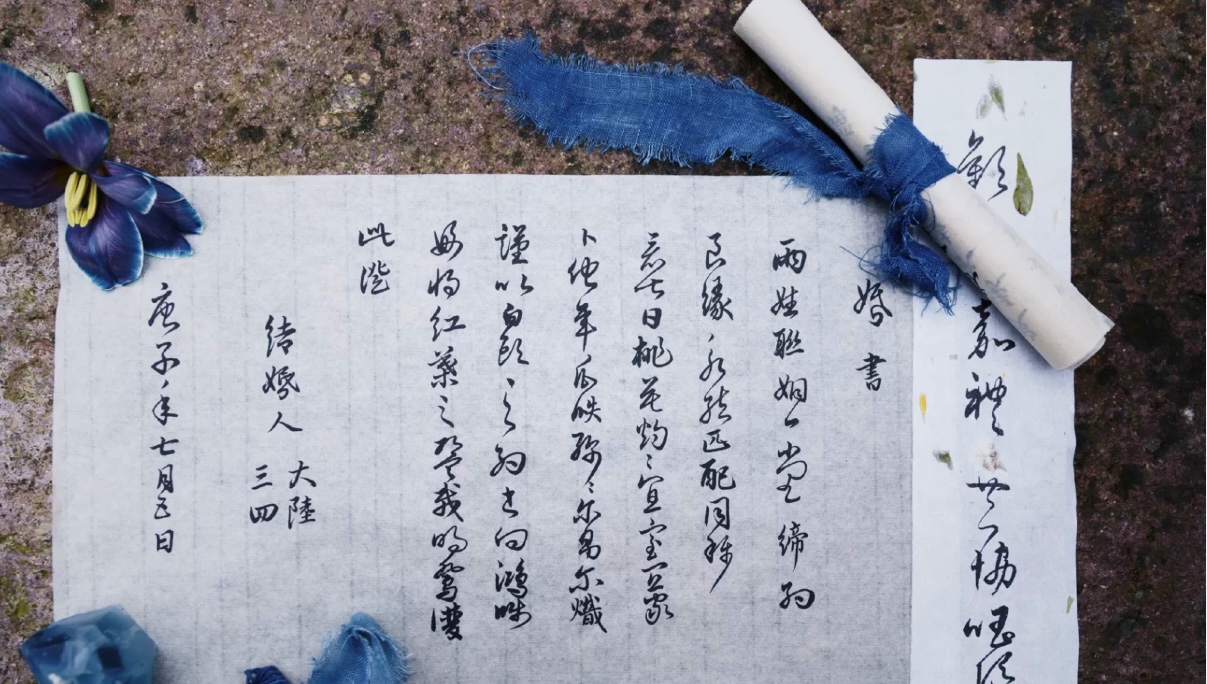 嘉禮
婚書
兩姓聯姻一堂締約
良緣永結匹配同稱
看此日桃花灼〻宜室宜家
卜他年瓜瓞綿〻尔昌尔熾
謹以白頭之約書向鴻牋
好將紅葉之盟載明鴛譜
此證
結婚人 大陸
三四
庚子年七月五日